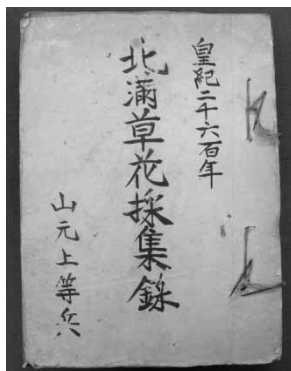 皇紀二千六百年
北滿草花採集錄
山元上等兵